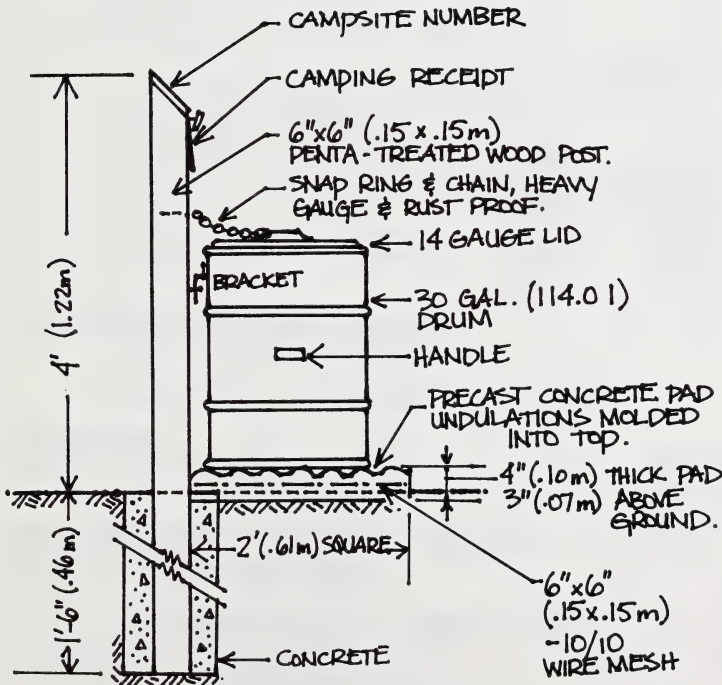 CAMPSITE NUMBER
CAMPING RECEIPT
6"x6" (.15 x .15m)
PENTA-TREATED WOOD POST.
SNAP RING & CHAIN, HEAVY
GAUGE & RUST PROOF.
14 GAUGE LID
BRACKET
30 GAL. (114.0 l)
DRUM
HANDLE
4' (1.22m)
PRECAST CONCRETE PAD
UNDULATIONS MOLDED
INTO TOP.
4" (.10m) THICK PAD
3" (.07m) ABOVE
GROUND.
2' (.61m) SQUARE
1'-6" (.46m)
6"x6"
(.15x.15m)
-10/10
WIRE MESH
CONCRETE